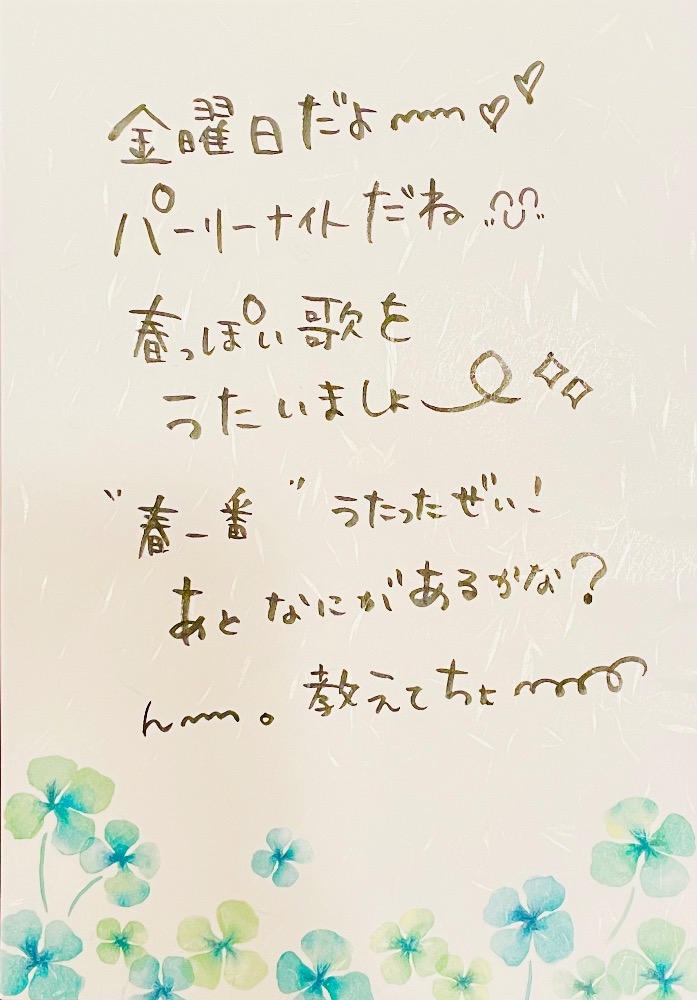 金曜日だよ〰♡♡
パーリーナイトだね
春っぽい歌を
うたいましょ
"春一番" うたったぜぃ!
あと なにがあるかな?
んー。教えてちょ〰